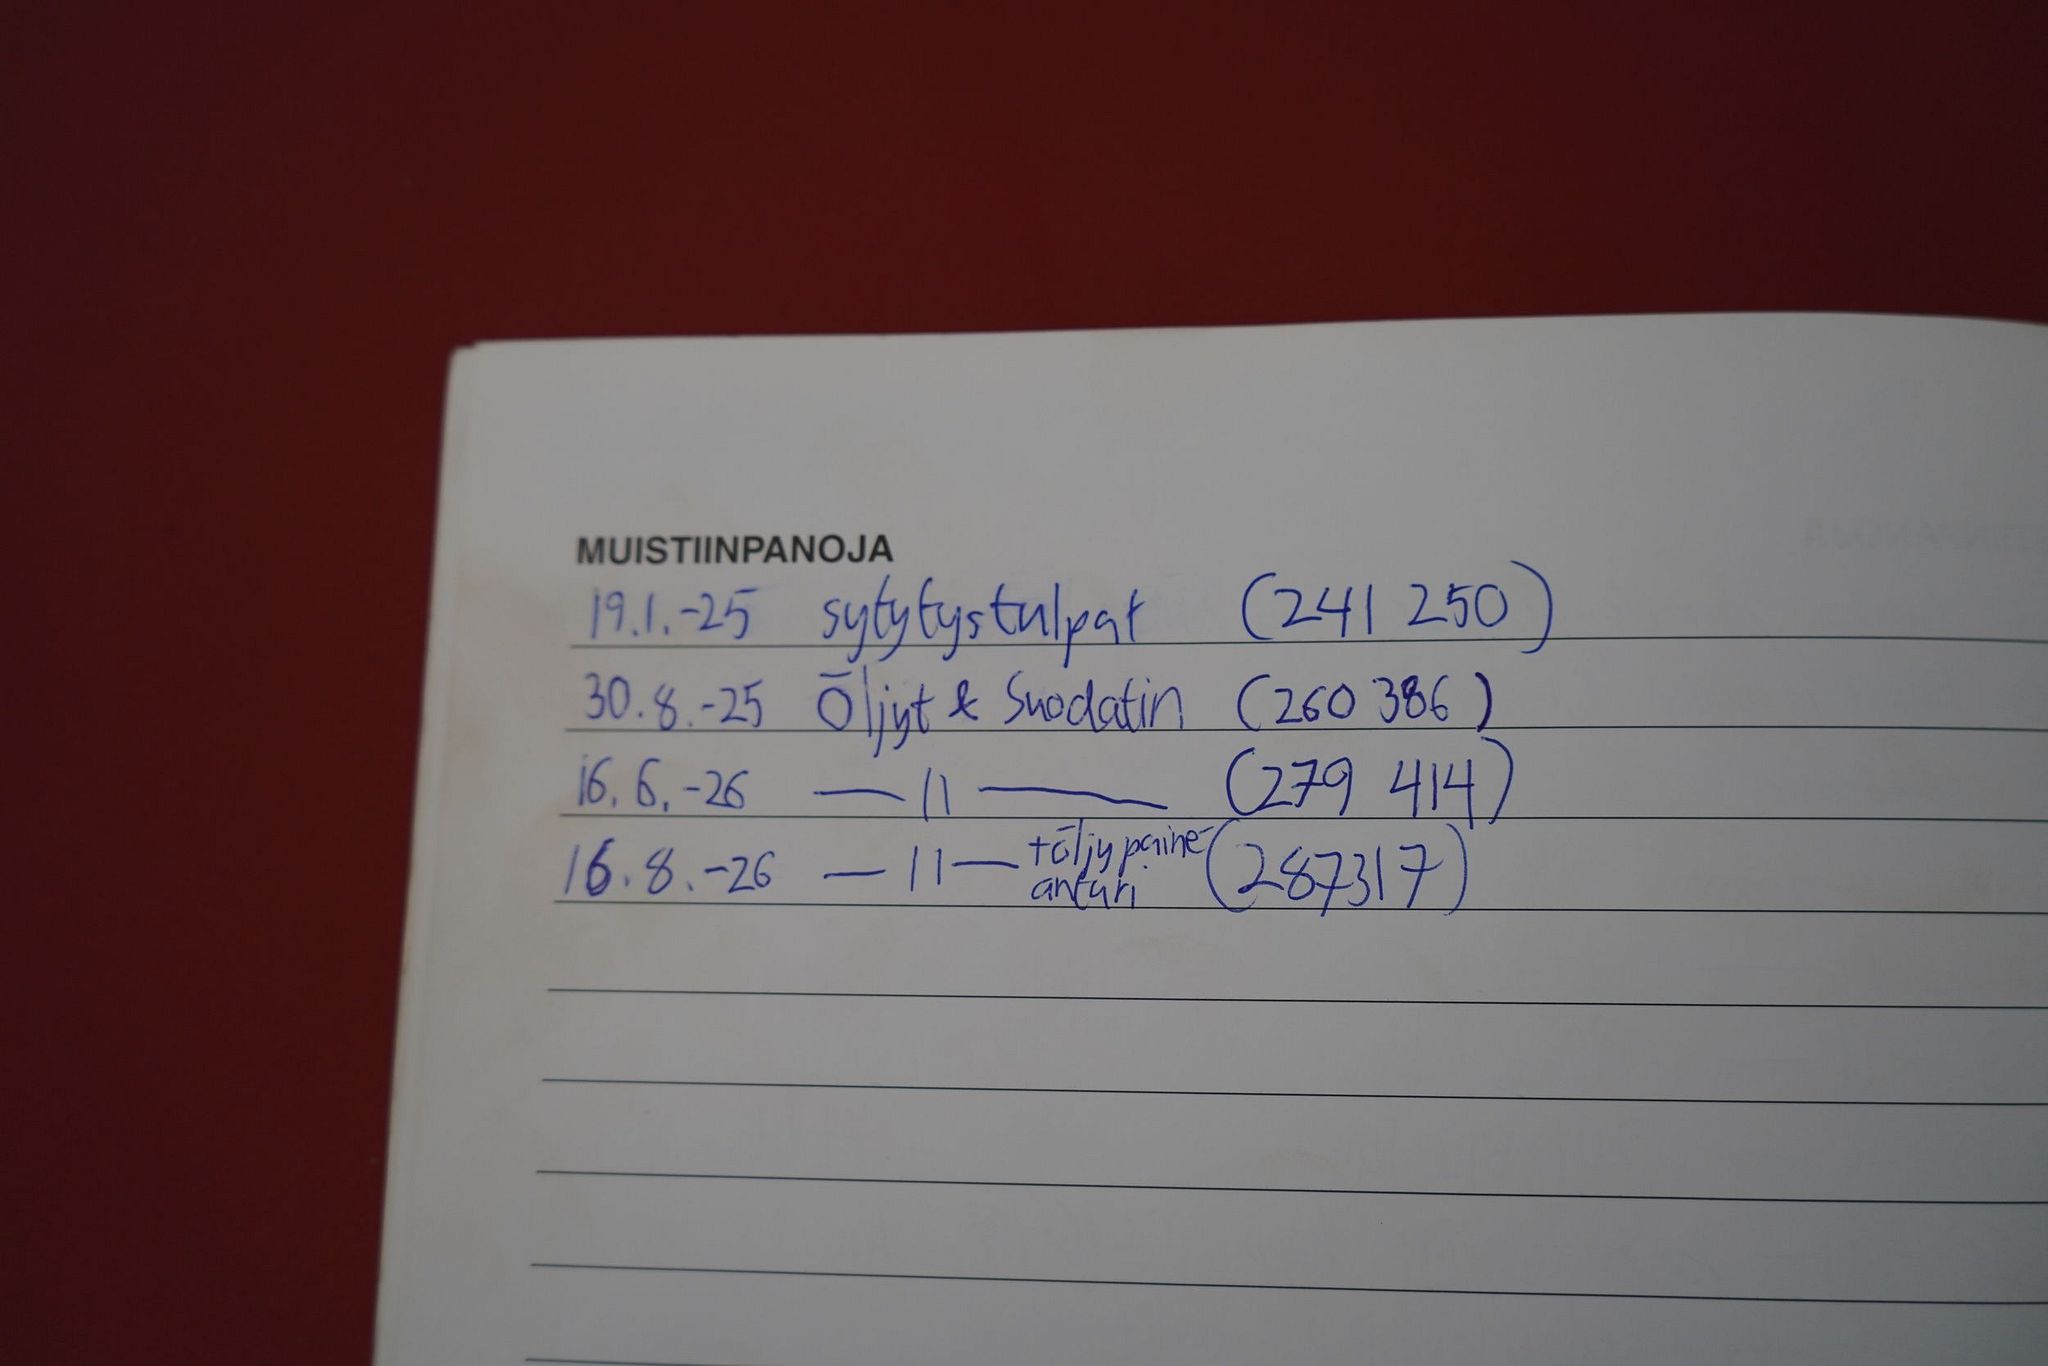 MUISTIINPANOJA
19.1.-25 sytytystulpat (241 250)
30.8.-25 Öljyt & Suodatin (260 386)
16.6.-26 —〃— (279 414)
16.8.-26 —〃— +öljypaine- (287317)
anturi